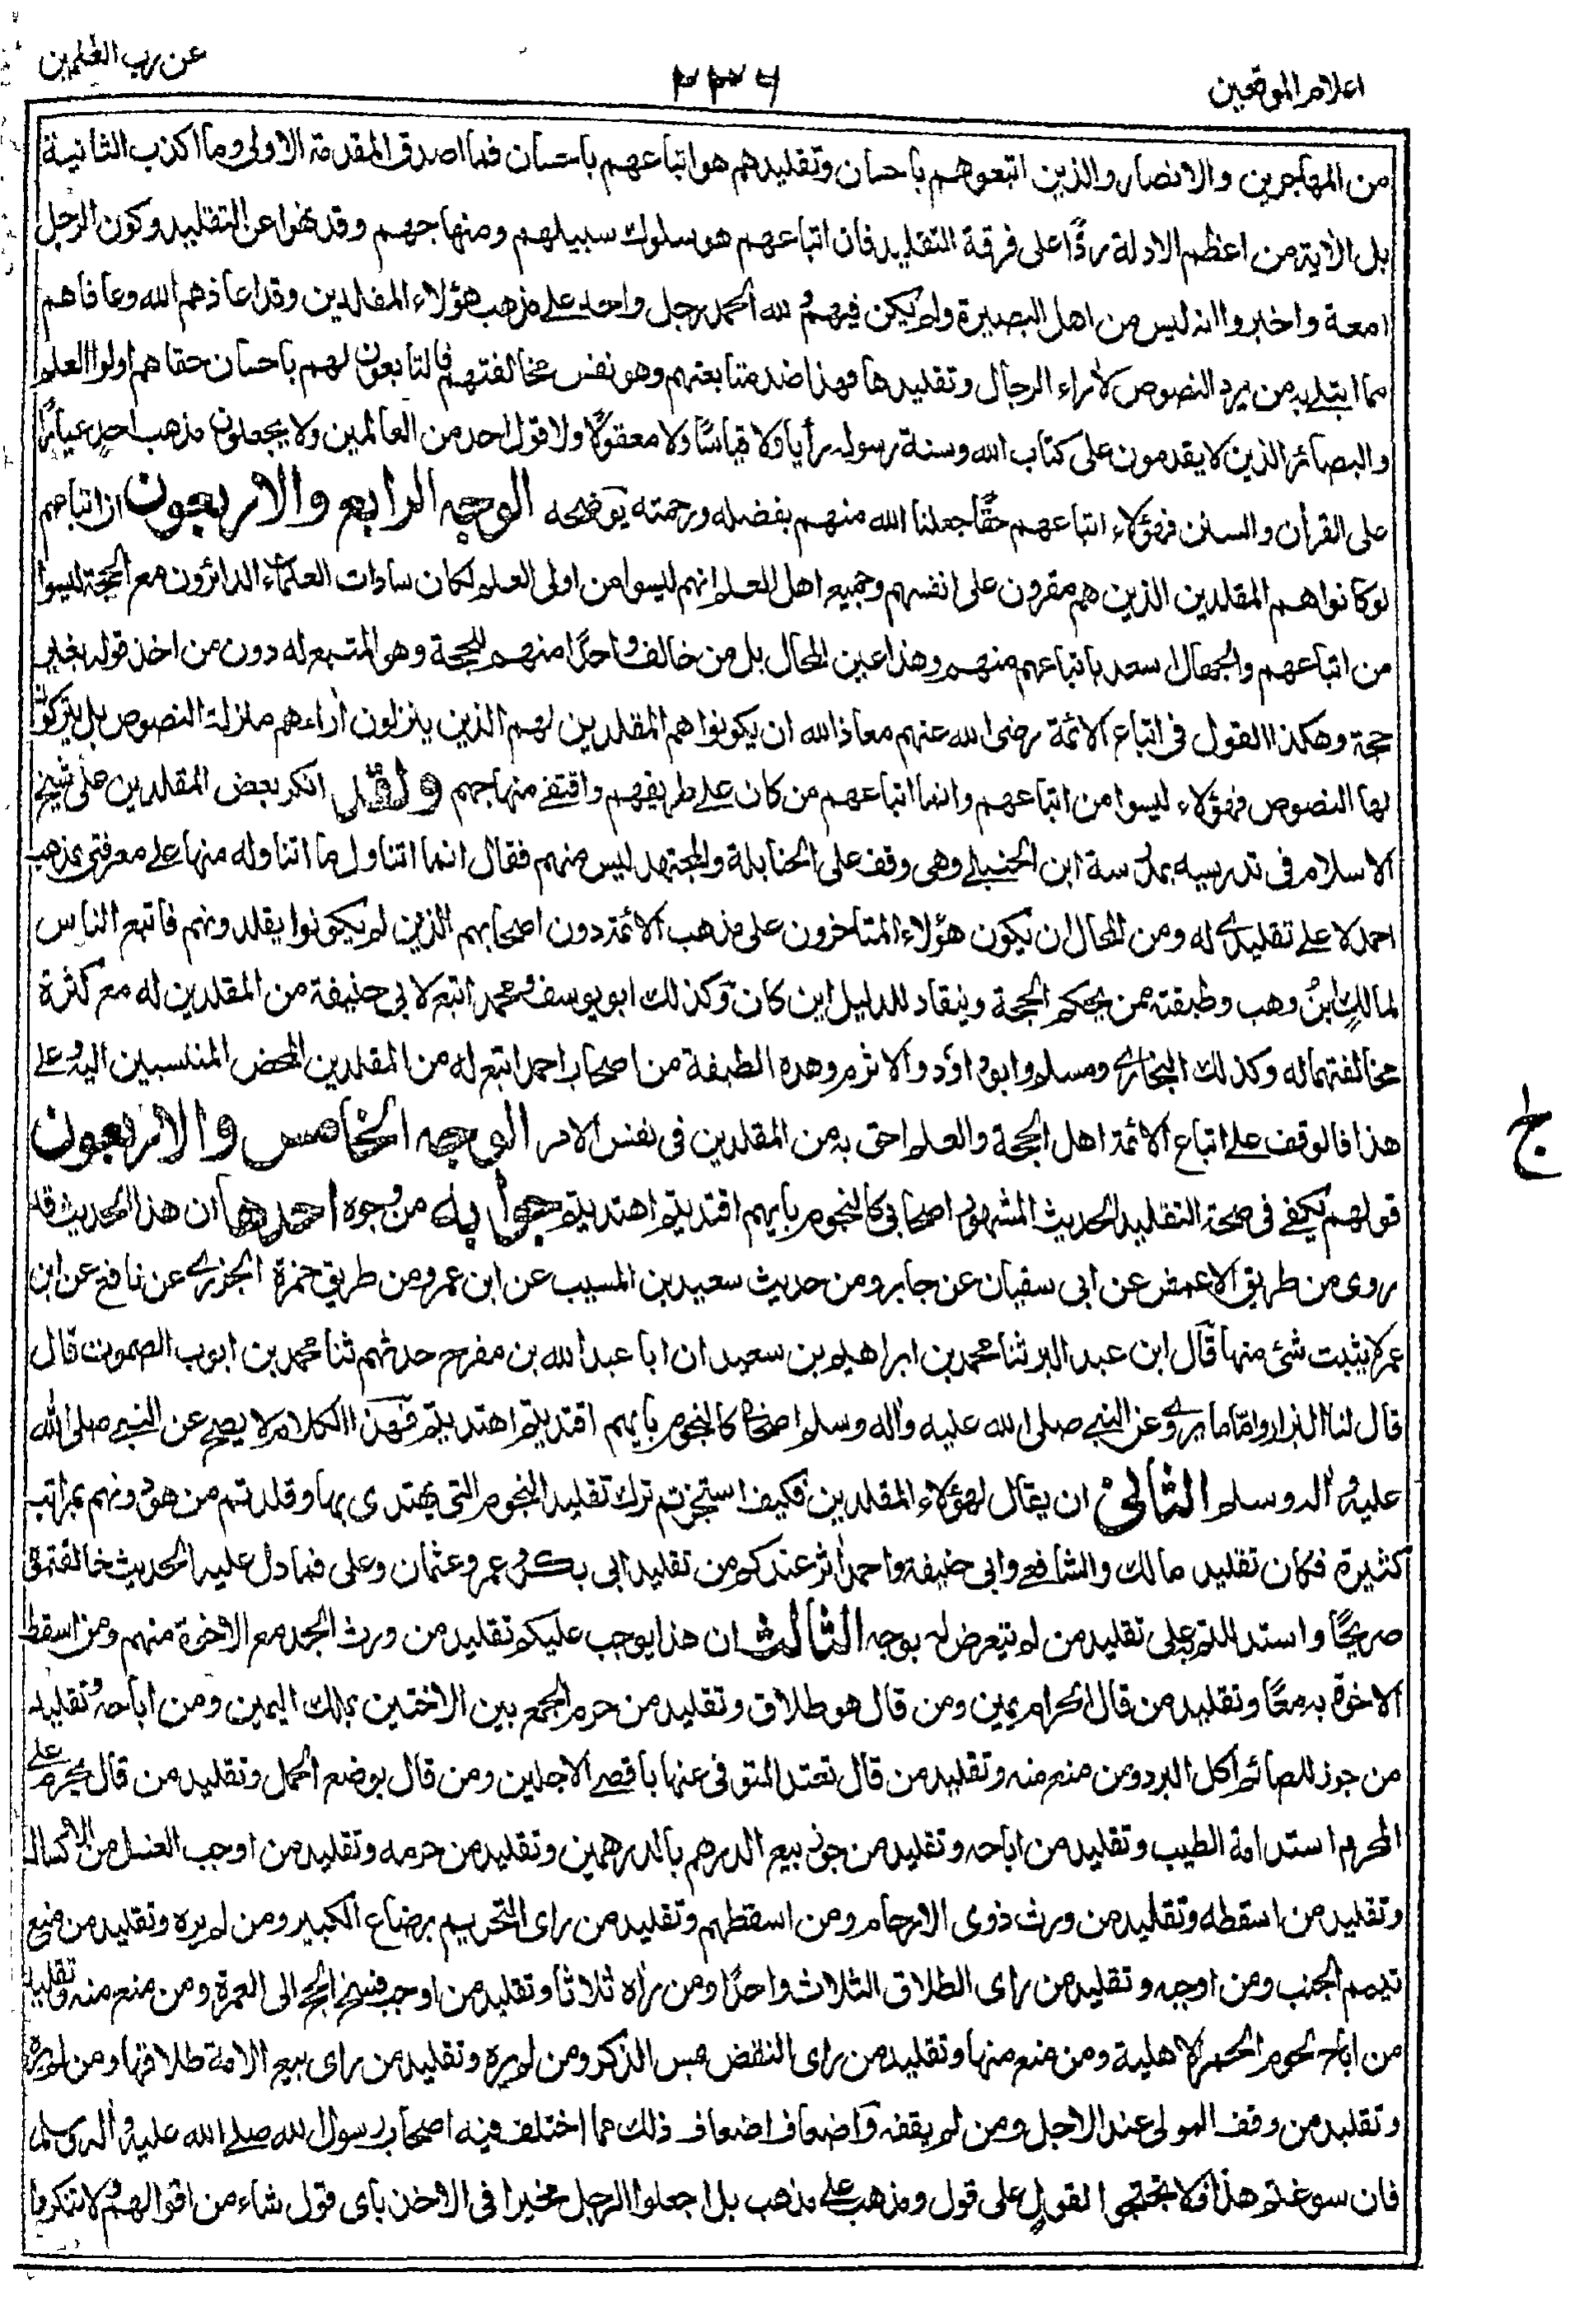 اعلام الموقعين
٢٣٦
عن رب العلمين
من المهاجرين والانصار والذين اتبعوهم باحسان وتقليدهم هو اتباعهم باحسان فما اصدق المقدمة الاولى وما اكذب الثانية
بل الاية من اعظم الادلة ردًا على فرقة التقليد فان اتباعهم هو سلوك سبيلهم ومنهاجهم وقد نهوا عن التقليد وكون الرجل
امعة واخبروا انه ليس من اهل البصيرة ولم يكن فيهم ولله الحمد رجل واحد على مذهب هؤلاء المقلدين وقد اعاذهم الله وعافاهم
مما ابتلى به من يرد النصوص لاٰراء الرجال وتقليدها فهذا ضد متابعتهم وهو نفس مخالفتهم فالتابعون لهم باحسان حقا هم اولوا العلم
والبصائر الذين لا يقدمون على كتاب الله وسنة رسوله رأيا ولا قياسًا ولا معقولًا ولا قول احد من العالمين ولا يجعلون مذهب احدٍ عيارًا
على القرأن والسنن فهؤلاء اتباعهم حقًا جعلنا الله منهم بفضله ورحمته يوضحه الوجه الرابع والاربعون ان اتباعهم
لو كانوا هم المقلدين الذين هم مقرون على انفسهم وجميع اهل العلم انهم ليسوا من اولى العلم لكان سادات العلماء الدائرون مع الحجة ليسوا
من اتباعهم والجهال اسعد باتباعهم منهم وهذا عين المحال بل من خالف واحدًا منهم للحجة وهو المتبع له دون من اخذ قوله بغير
حجة وهكذا القول فى اتباع الائمة رضى الله عنهم معاذ الله ان يكونوا هم المقلدين لهم الذين ينزلون أراءهم منزلة النصوص بل يتركون
لها النصوص فهؤلاء ليسوا من اتباعهم وانما اتباعهم من كان على طريقهم واقتفى منهاجهم ولقد انكر بعض المقلدين على شيخ
الاسلام فى تدريسه بمدرسة ابن الحنبلى وهى وقف على الحنابلة والمجتهد ليس منهم فقال انما اتناول ما اتناوله منها على معرفتى بمذهب
احمد لا على تقليدى له ومن المحال ان يكون هؤلاء المتاخرون على مذهب الائمة دون اصحابهم الذين لم يكونوا يقلدونهم فاتبع الناس
لمالكٍ ابنُ وهب وطبقته ممن يحكم الحجة وينقاد للدليل اين كان وكذلك ابو يوسف ومحمد اتبع لابى حنيفة من المقلدين له مع كثرة
مخالفتهما له وكذلك البخارى ومسلم وابو داود والاثرم وهذه الطبقة من اصحاب احمد اتبع له من المقلدين المحض المنتسبين اليه وعلى
هذا فالوقف على اتباع الائمة اهل الحجة والعلم احق به من المقلدين فى نفس الامر الوجه الخامس والاربعون
قولهم يكفى فى صحة التقليد الحديث المشهور اصحابى كالنجوم بايهم اقتديتم اهتديتم جوابه من وجوه احدها ان هذا الحديث قد
روى من طريق الاعمش عن ابى سفيان عن جابر ومن حديث سعيد بن المسيب عن ابن عمر ومن طريق حمزة الجزرى عن نافع عن ابن
عمر لا يثبت شئ منها قال ابن عبد البر ثنا محمد بن ابراهيم بن سعيد ان ابا عبد الله بن مفرح حدثهم ثنا محمد بن ايوب الصموت قال
قال لنا البزار واما ما يروى عن النبى صلى الله عليه وأله وسلم اصحابى كالنجوم بايهم اقتديتم اهتديتم فهذا الكلام لا يصح عن النبى صلى الله
عليه وأله وسلم الثانى ان يقال لهؤلاء المقلدين فكيف استجزتم ترك تقليد النجوم التى يهتدى بها وقلدتم من هو دونهم بمراتب
كثيرة فكان تقليد مالك والشافعى وابى حنيفة واحمد اٰثر عندكم من تقليد ابى بكر وعمر وعثمان وعلى فما دل عليه الحديث خالفتموه
صريحًا واستدللتم به على تقليد من لم يتعرض له بوجه الثالث ان هذا يوجب عليكم تقليد من ورث الجد مع الاخوة منهم ومن اسقط
الاخوة به معًا وتقليد من قال الحرام يمين ومن قال هو طلاق وتقليد من حرم الجمع بين الاختين بملك اليمين ومن اباحه وتقليد
من جوز للصائم اكل البرد ومن منع منه وتقليد من قال تعتد المتوفى عنها باقصى الاجلين ومن قال بوضع الحمل وتقليد من قال يحرم على
المحرم استدامة الطيب وتقليد من اباحه وتقليد من جوز بيع الدرهم بالدرهمين وتقليد من حرمه وتقليد من اوجب الغسل من الاكسال
وتقليد من اسقطه وتقليد من ورث ذوى الارحام ومن اسقطهم وتقليد من راى التحريم برضاع الكبير ومن لم يره وتقليد من منع
تيمم الجنب ومن اوجبه وتقليد من راى الطلاق الثلاث واحدًا ومن رأه ثلاثا وتقليد من اوجب فسخ الحج الى العمرة ومن منع منه وتقليد
من اباح لحوم الحمر الاهلية ومن منع منها وتقليد من راى النقض بمس الذكر ومن لم يره وتقليد من راى بيع الامة طلاقها ومن لم يره
وتقليد من وقف المولى عند الاجل ومن لم يقفه واضعاف اضعاف ذلك مما اختلف فيه اصحاب رسول الله صلى الله عليه وأله وسلم
فان سوغتم هذا فلا تحتجوا لقولٍ على قول ومذهب على مذهب بل اجعلوا الرجل مخيرا فى الاخذ باى قول شاء من اقوالهم ولا تنكروا
ج